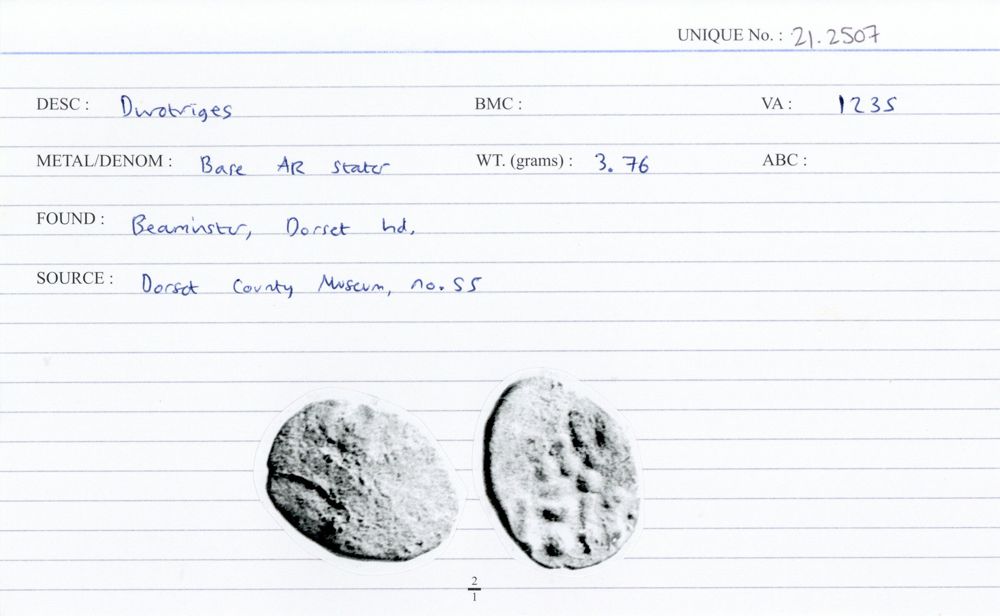 UNIQUE No. : 21.2507
DESC : Durotriges BMC : VA : 1235
METAL/DENOM : Base AR stater WT. (grams) : 3.76 ABC :
FOUND : Beaminster, Dorset hd.
SOURCE : Dorset County Museum, no. 55
2
1